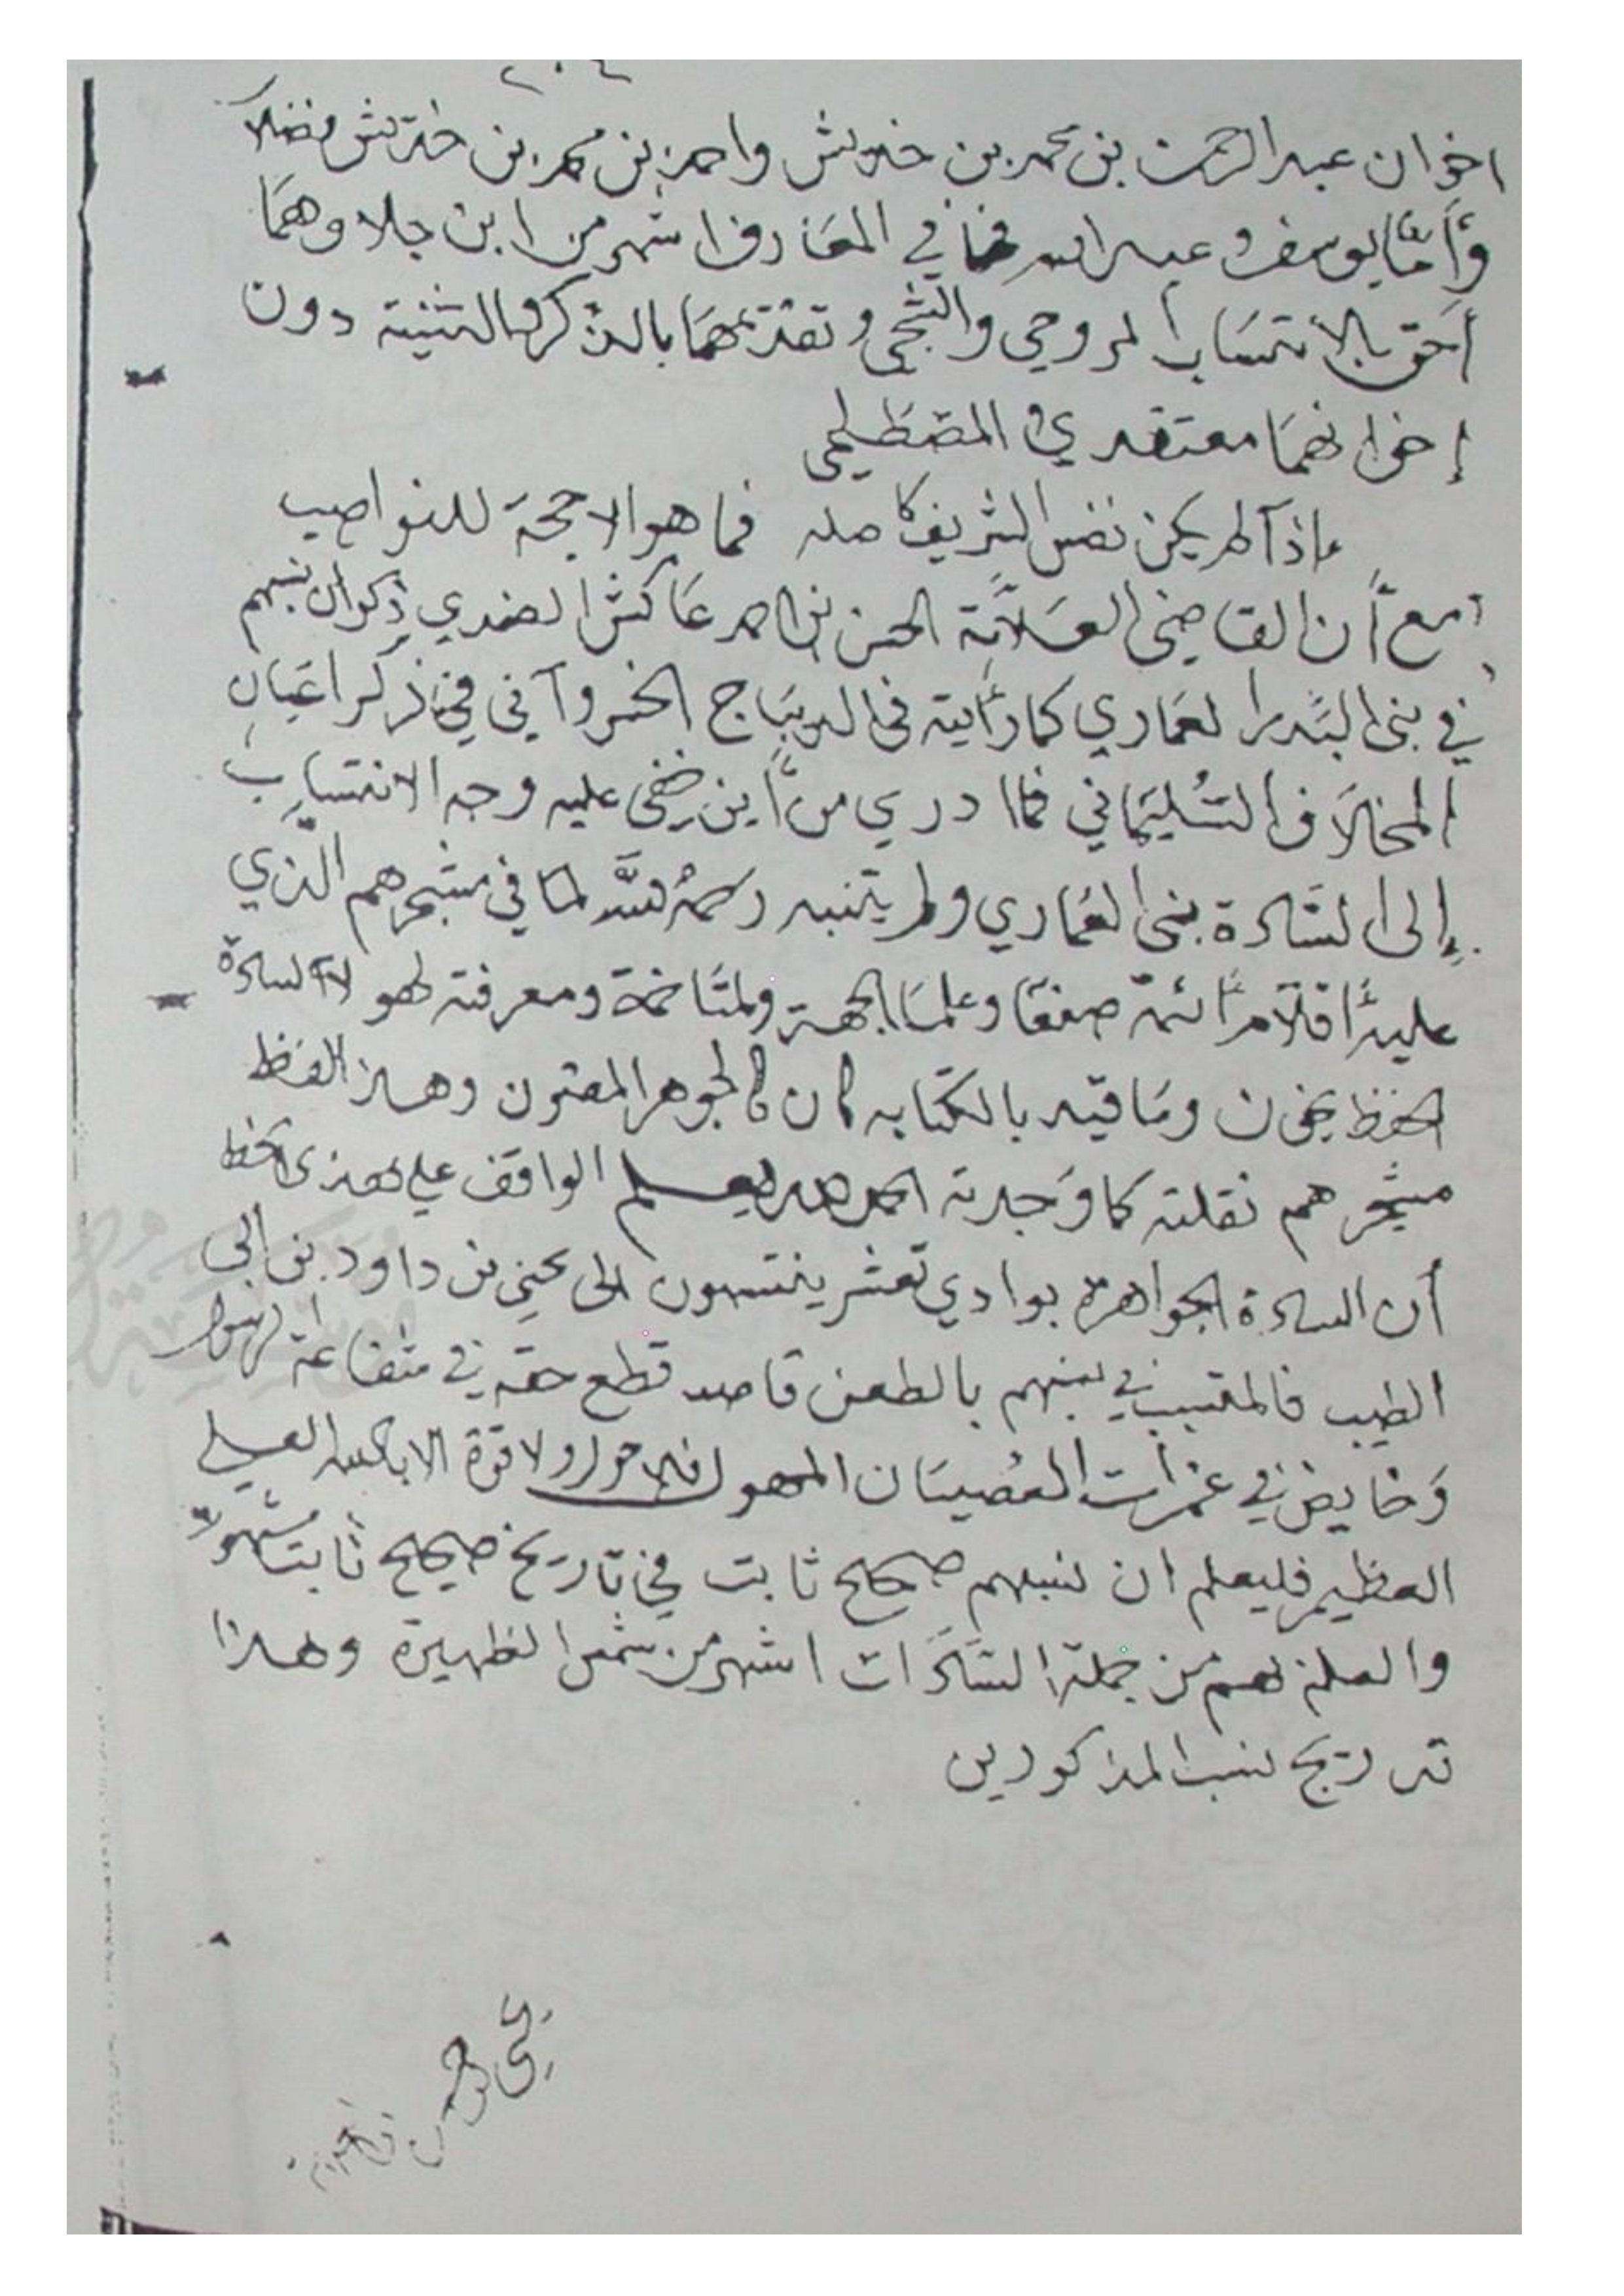 ٢٠٤
اخوان عبد الرحمن بن محمد بن خديش واحمد بن محمد بن خديش فضلاً
وأمّا يوسف وعبد الله فهما في المعَارف اشهر من ابن جلا وهمَا
أحَق بالإنتسَاب الروحي والشجي وتقديمهمَا بالذكر والتثنية دون
إخوانهمَا معتقدي المصْطلحي
ماذا لم يكن نفس الشريف كأصله فما هو الا حجة للنواصب
مع أن القاضي العَلامَّة الحسن بن احمد عَاكش الضمدي ذكر ان نسبهم
في بني البَدر العمَاري كما رأيته في الديبَاج الخسرواني في ذكر اعيَان
المخلاَف السُّليمَاني فما ادري من أين خفي عليه وجه الانتسَاب
إلى السَّادة بني العمَاري ولم يتنبه رحمهُ اللهَّ لما في مشجرهم الَّذي
عليه أقلام أئمة صنعَا وعلمَا الجهة والمتَاخمة ومعرفته لهو لآء السادة
الحفظ يخون ومَا قيد بالكتابه كان كالجوهر المصون وهذا لفظ
مشجرهم نقلته كما وَجدته الحمد لله ليعلم الواقف على هذى الخط
أن السادة الجواهرة بوادي تعشر ينتسبون الى يحيى بن داود بن ابي
الطيب فالمتسبب في نسبهم بالطعن قاصد قطع حقه في شفاعة الرسول
وَخايض في غمرات العُصيَان المهول فلا حول ولا قوة الا بالله العلي
العظيم فليعلم ان نسبهم صحيح ثابت في تاريخ صحيح ثابت
والعلم لهم من جملة السَّادَات اشهر من شمس الظهيرة وهذا
تدريج نسب المذكورين